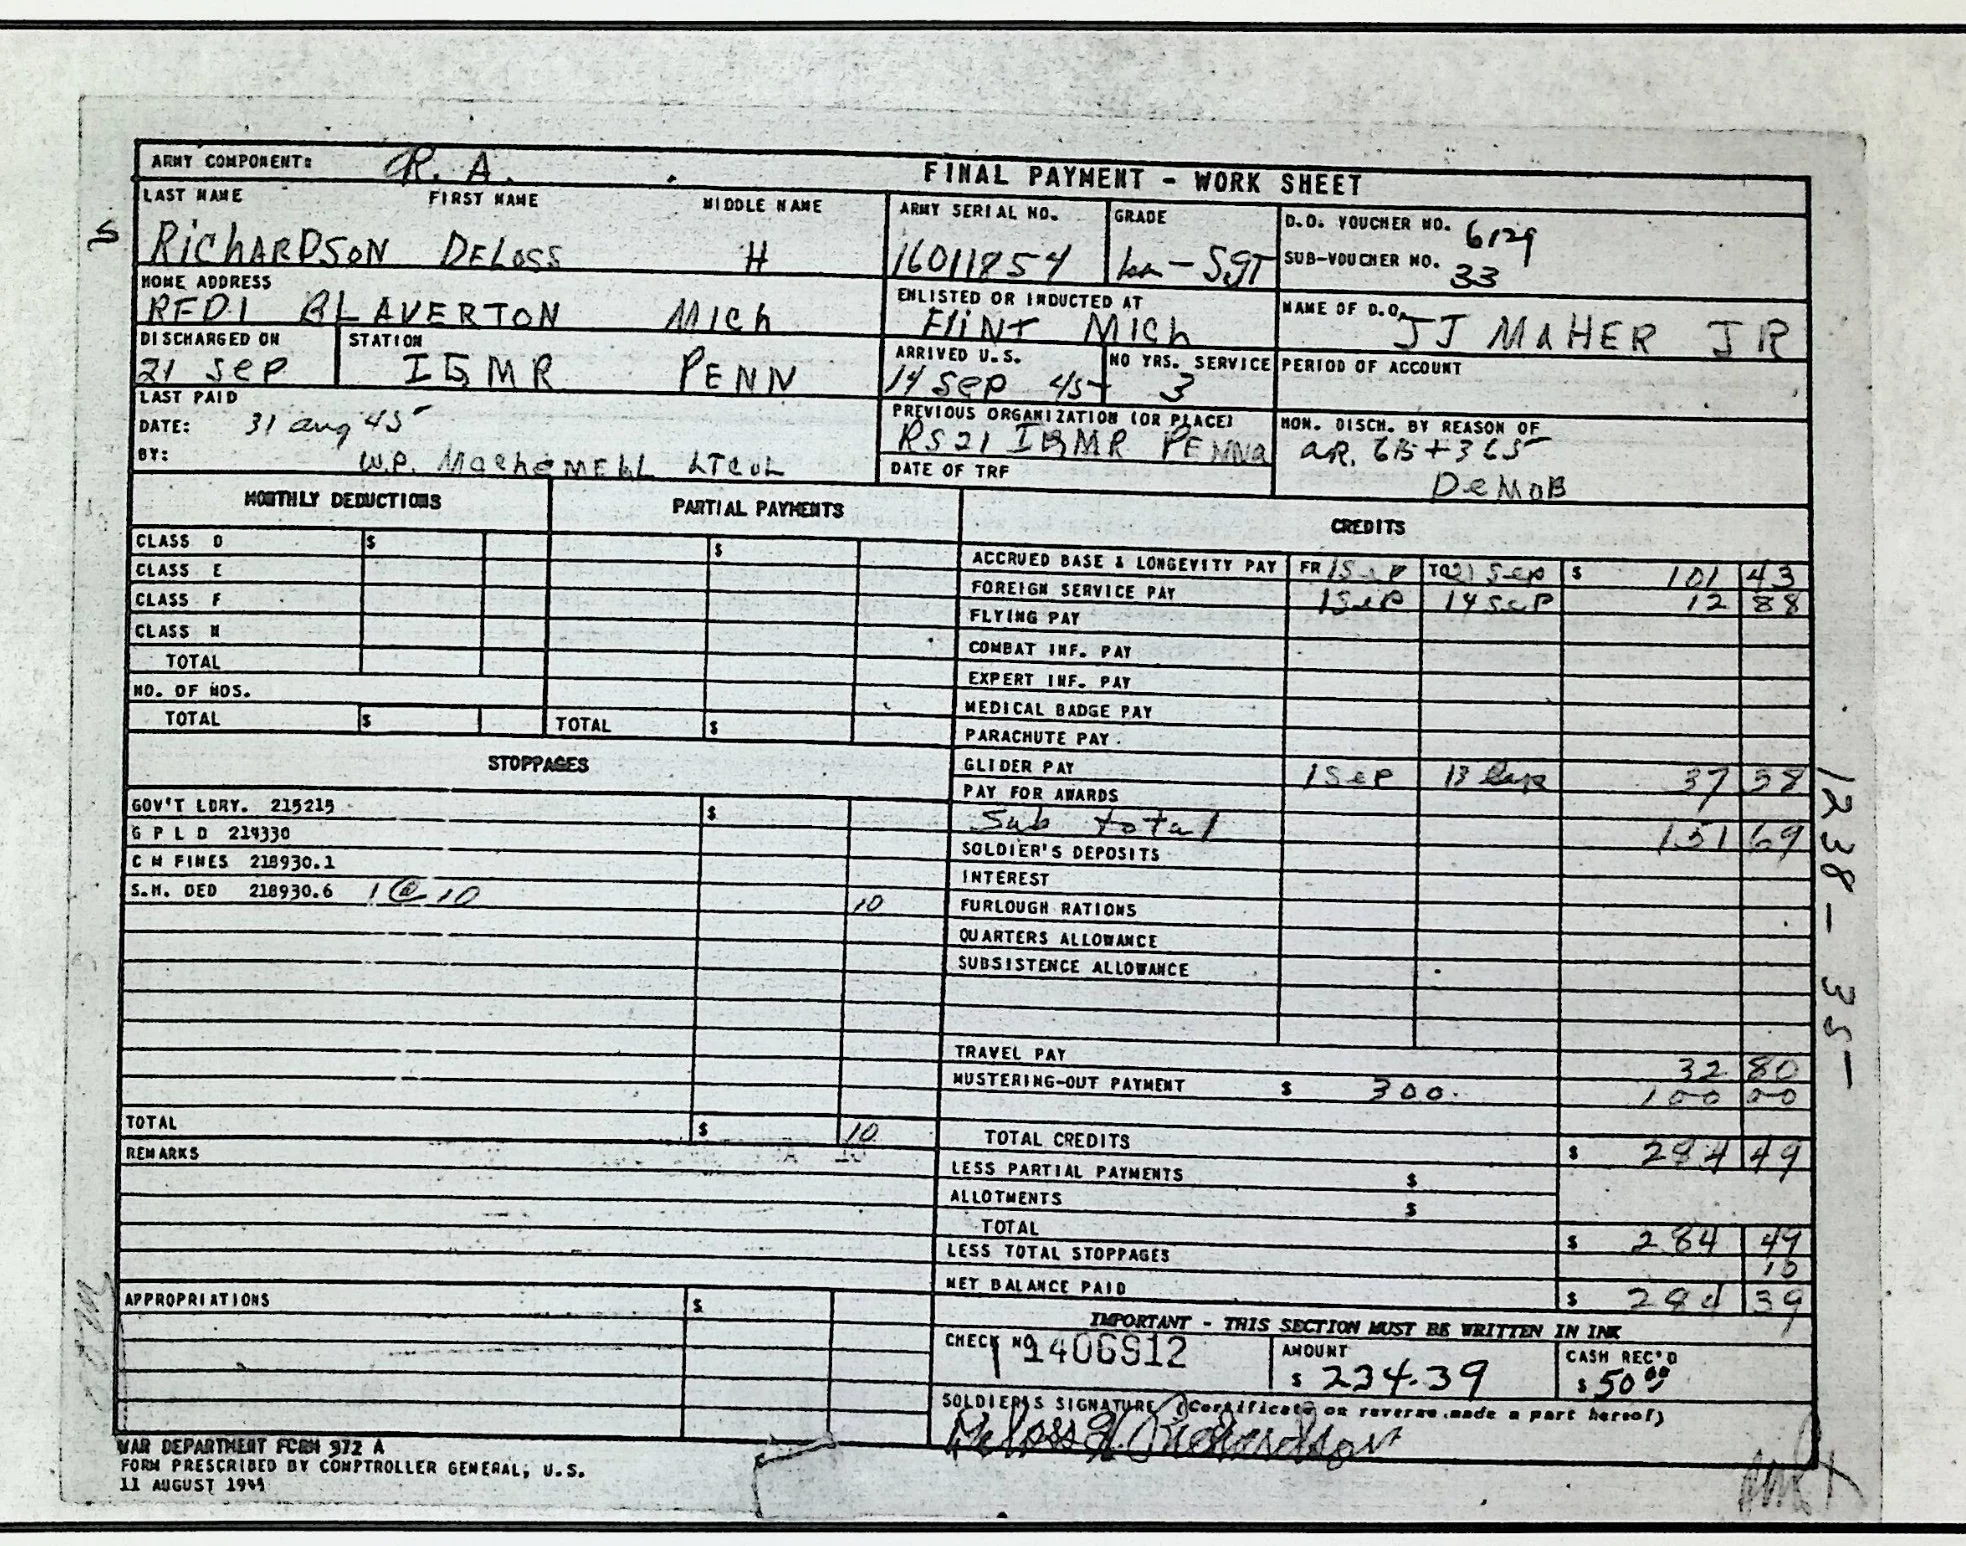 ARMY COMPONENT: R. A.
FINAL PAYMENT - WORK SHEET
LAST NAME FIRST NAME MIDDLE NAME
S RichARDSON DELOSS H
ARMY SERIAL NO. 16011854
GRADE Sgt
D.O. VOUCHER NO. 6129
SUB-VOUCHER NO. 33
HOME ADDRESS
RFD1 BLAVERTON Mich
ENLISTED OR INDUCTED AT
FliNt Mich
NAME OF D.O. JJ MaHER JR
DISCHARGED ON 21 Sep
STATION IGMR PENN
ARRIVED U.S. 14 Sep 45
NO YRS. SERVICE 3
PERIOD OF ACCOUNT
LAST PAID
DATE: 31 aug 45
BY: W.P. LTCOL
PREVIOUS ORGANIZATION (OR PLACE)
RS21 IGMR PENNa
DATE OF TRF
HON. DISCH. BY REASON OF
aR. 615+365
DeMoB
MONTHLY DEDUCTIONS
CLASS D $
CLASS E
CLASS F
CLASS N
TOTAL
NO. OF MOS.
TOTAL $
PARTIAL PAYMENTS
$
TOTAL $
CREDITS
ACCRUED BASE & LONGEVITY PAY FR 1 Sep TO 21 Sep $ 101 43
FOREIGN SERVICE PAY 1 Sep 14 Sep 12 88
FLYING PAY
COMBAT INF. PAY
EXPERT INF. PAY
MEDICAL BADGE PAY
PARACHUTE PAY
GLIDER PAY 1 Sep 13 Sep 37 38
PAY FOR AWARDS
Sub total 151 69
SOLDIER'S DEPOSITS
INTEREST
FURLOUGH RATIONS
QUARTERS ALLOWANCE
SUBSISTENCE ALLOWANCE
TRAVEL PAY 32 80
MUSTERING-OUT PAYMENT $ 300. 100 00
TOTAL CREDITS $ 284 49
LESS PARTIAL PAYMENTS $
ALLOTMENTS $
TOTAL $ 284 49
LESS TOTAL STOPPAGES 10
NET BALANCE PAID $ 284 39
STOPPAGES
GOV'T LDRY. 215215 $
G P L D 214330
C M FINES 218930.1
S.H. DED 218930.6 1 @ 10 10
TOTAL $ 10
REMARKS
APPROPRIATIONS $
IMPORTANT - THIS SECTION MUST BE WRITTEN IN INK
CHECK NO 1406912
AMOUNT $ 234.39
CASH REC'D $ 50 00
SOLDIER'S SIGNATURE (Certificate on reverse made a part hereof)
Deloss H. Richardson
WAR DEPARTMENT FORM 372 A
FORM PRESCRIBED BY COMPTROLLER GENERAL, U.S.
11 AUGUST 1944
1238-35-